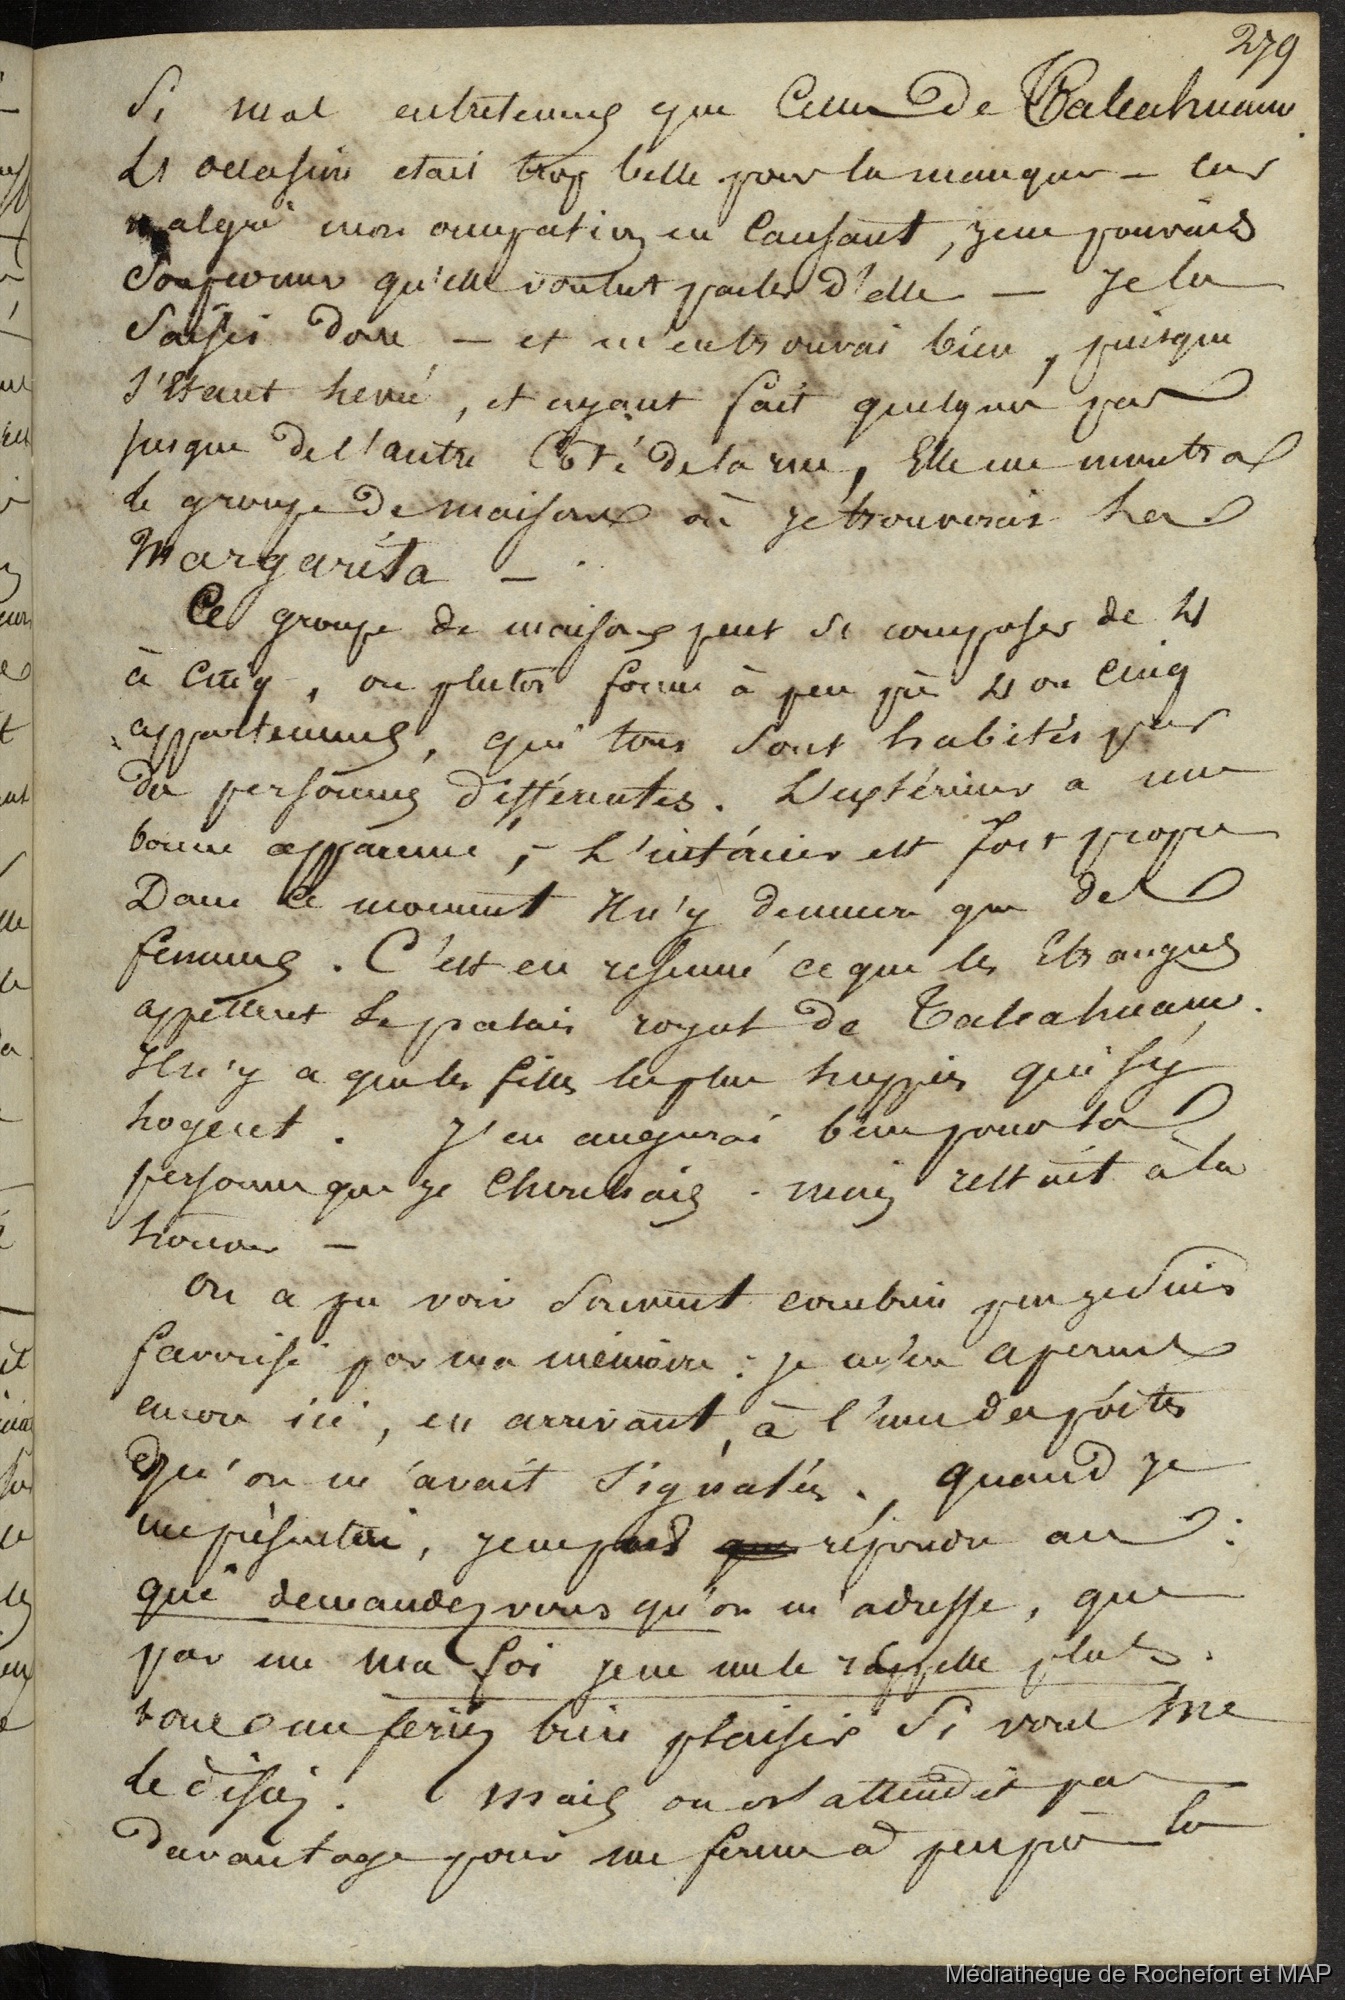 279
Si mal entretenues que Celles de Talcahuano.
L'occasion etait trop belle pour la manquer — car
malgré mon occupation en Causant, je ne pouvais
Soupçonner qu'elle voulut parler d'elle — Je la
Saisis donc — et m'en trouvai bien, puisque
S'étant levée, et ayant fait quelques pas
jusque de l'autre Côté de la rue, Elle me montra
le groupe de maisons où je trouverais La
Margarita —
Ce groupe de maisons peut se composer de 4
à Cinq, ou plutôt forme à peu près 4 ou Cinq
appartemens, qui tous sont habités par
des personnes différentes. L'extérieur a une
bonne apparence, — L'intérieur est fort propre
Dans ce moment Il n'y demeure que des
femmes. C'est en resumé ce que les Etrangers
appellent Le palais royal de Talcahuano.
Il n'y a que les filles les plus huppées qui s'y
logent. J'en augurai bien pour la
personne que je Cherchais. mais restait à la
trouver —
On a pu voir Souvent combien peu je suis
favorisé par ma mémoire : je m'en aperçus
encore ici, en arrivant, à l'une des portes
qu'on m'avait Signalées., quand je
me présentai, je ne pus répondre au :
qui demandez vous qu'on m'adressa, que
par un ma foi je ne me le rappelle plus.
vous me feriez bien plaisir Si vous me
le disiez. Mais on n'attendit pas
davantage pour me fermer à peu près la
Médiathèque de Rochefort et MAP